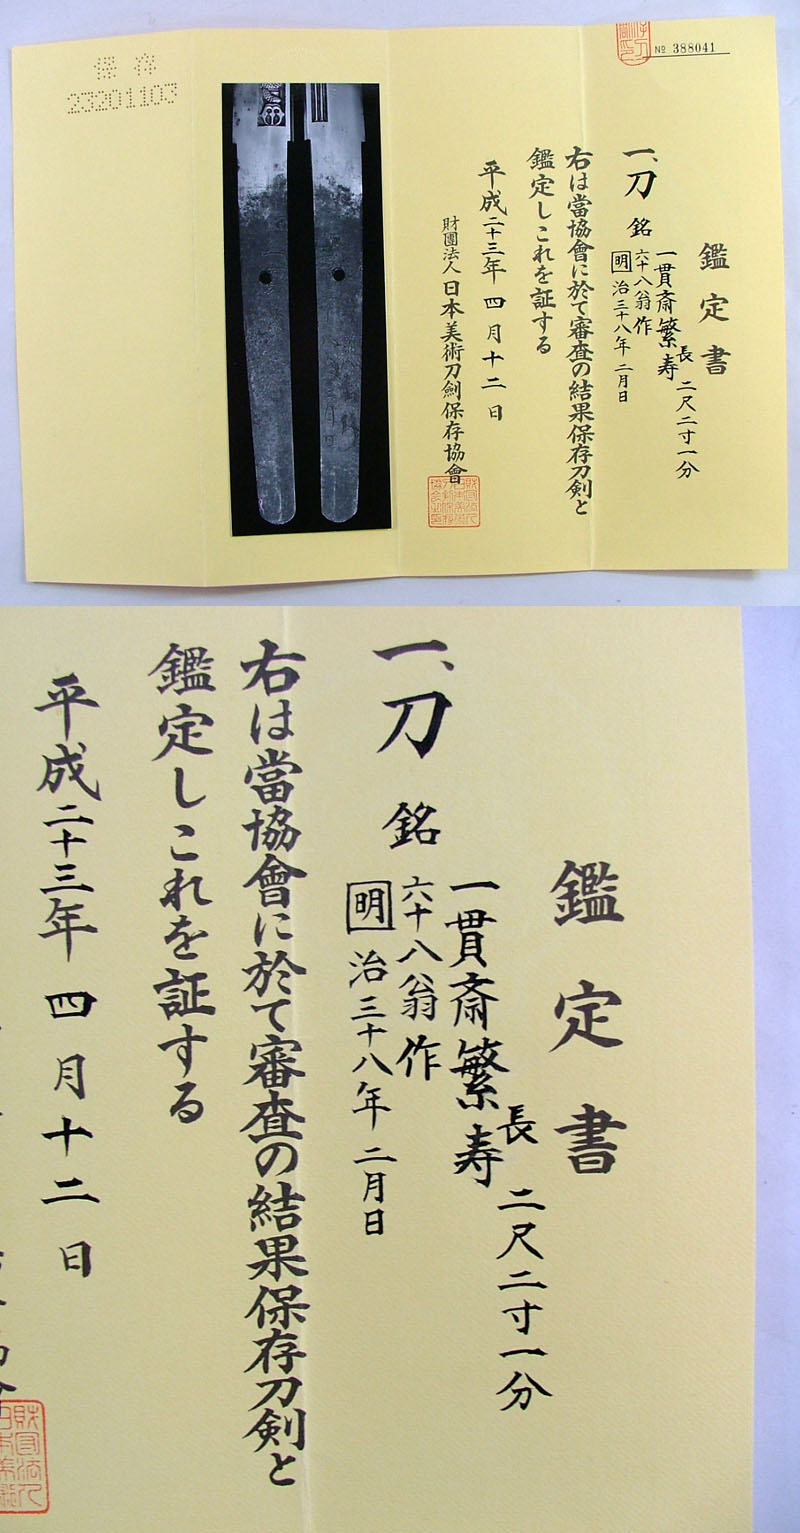 保存
23201103
№ 388041
鑑定書
一、刀 銘
長 二尺二寸一分
一貫斎繁寿
六十八翁作
明治三十八年二月日
右は當協會に於て審査の結果保存刀剣と
鑑定しこれを証する
平成二十三年四月十二日
財團法人日本美術刀剣保存協會
鑑定書
一、刀 銘
長 二尺二寸一分
一貫斎繁寿
六十八翁作
明治三十八年二月日
右は當協會に於て審査の結果保存刀剣と
鑑定しこれを証する
平成二十三年四月十二日